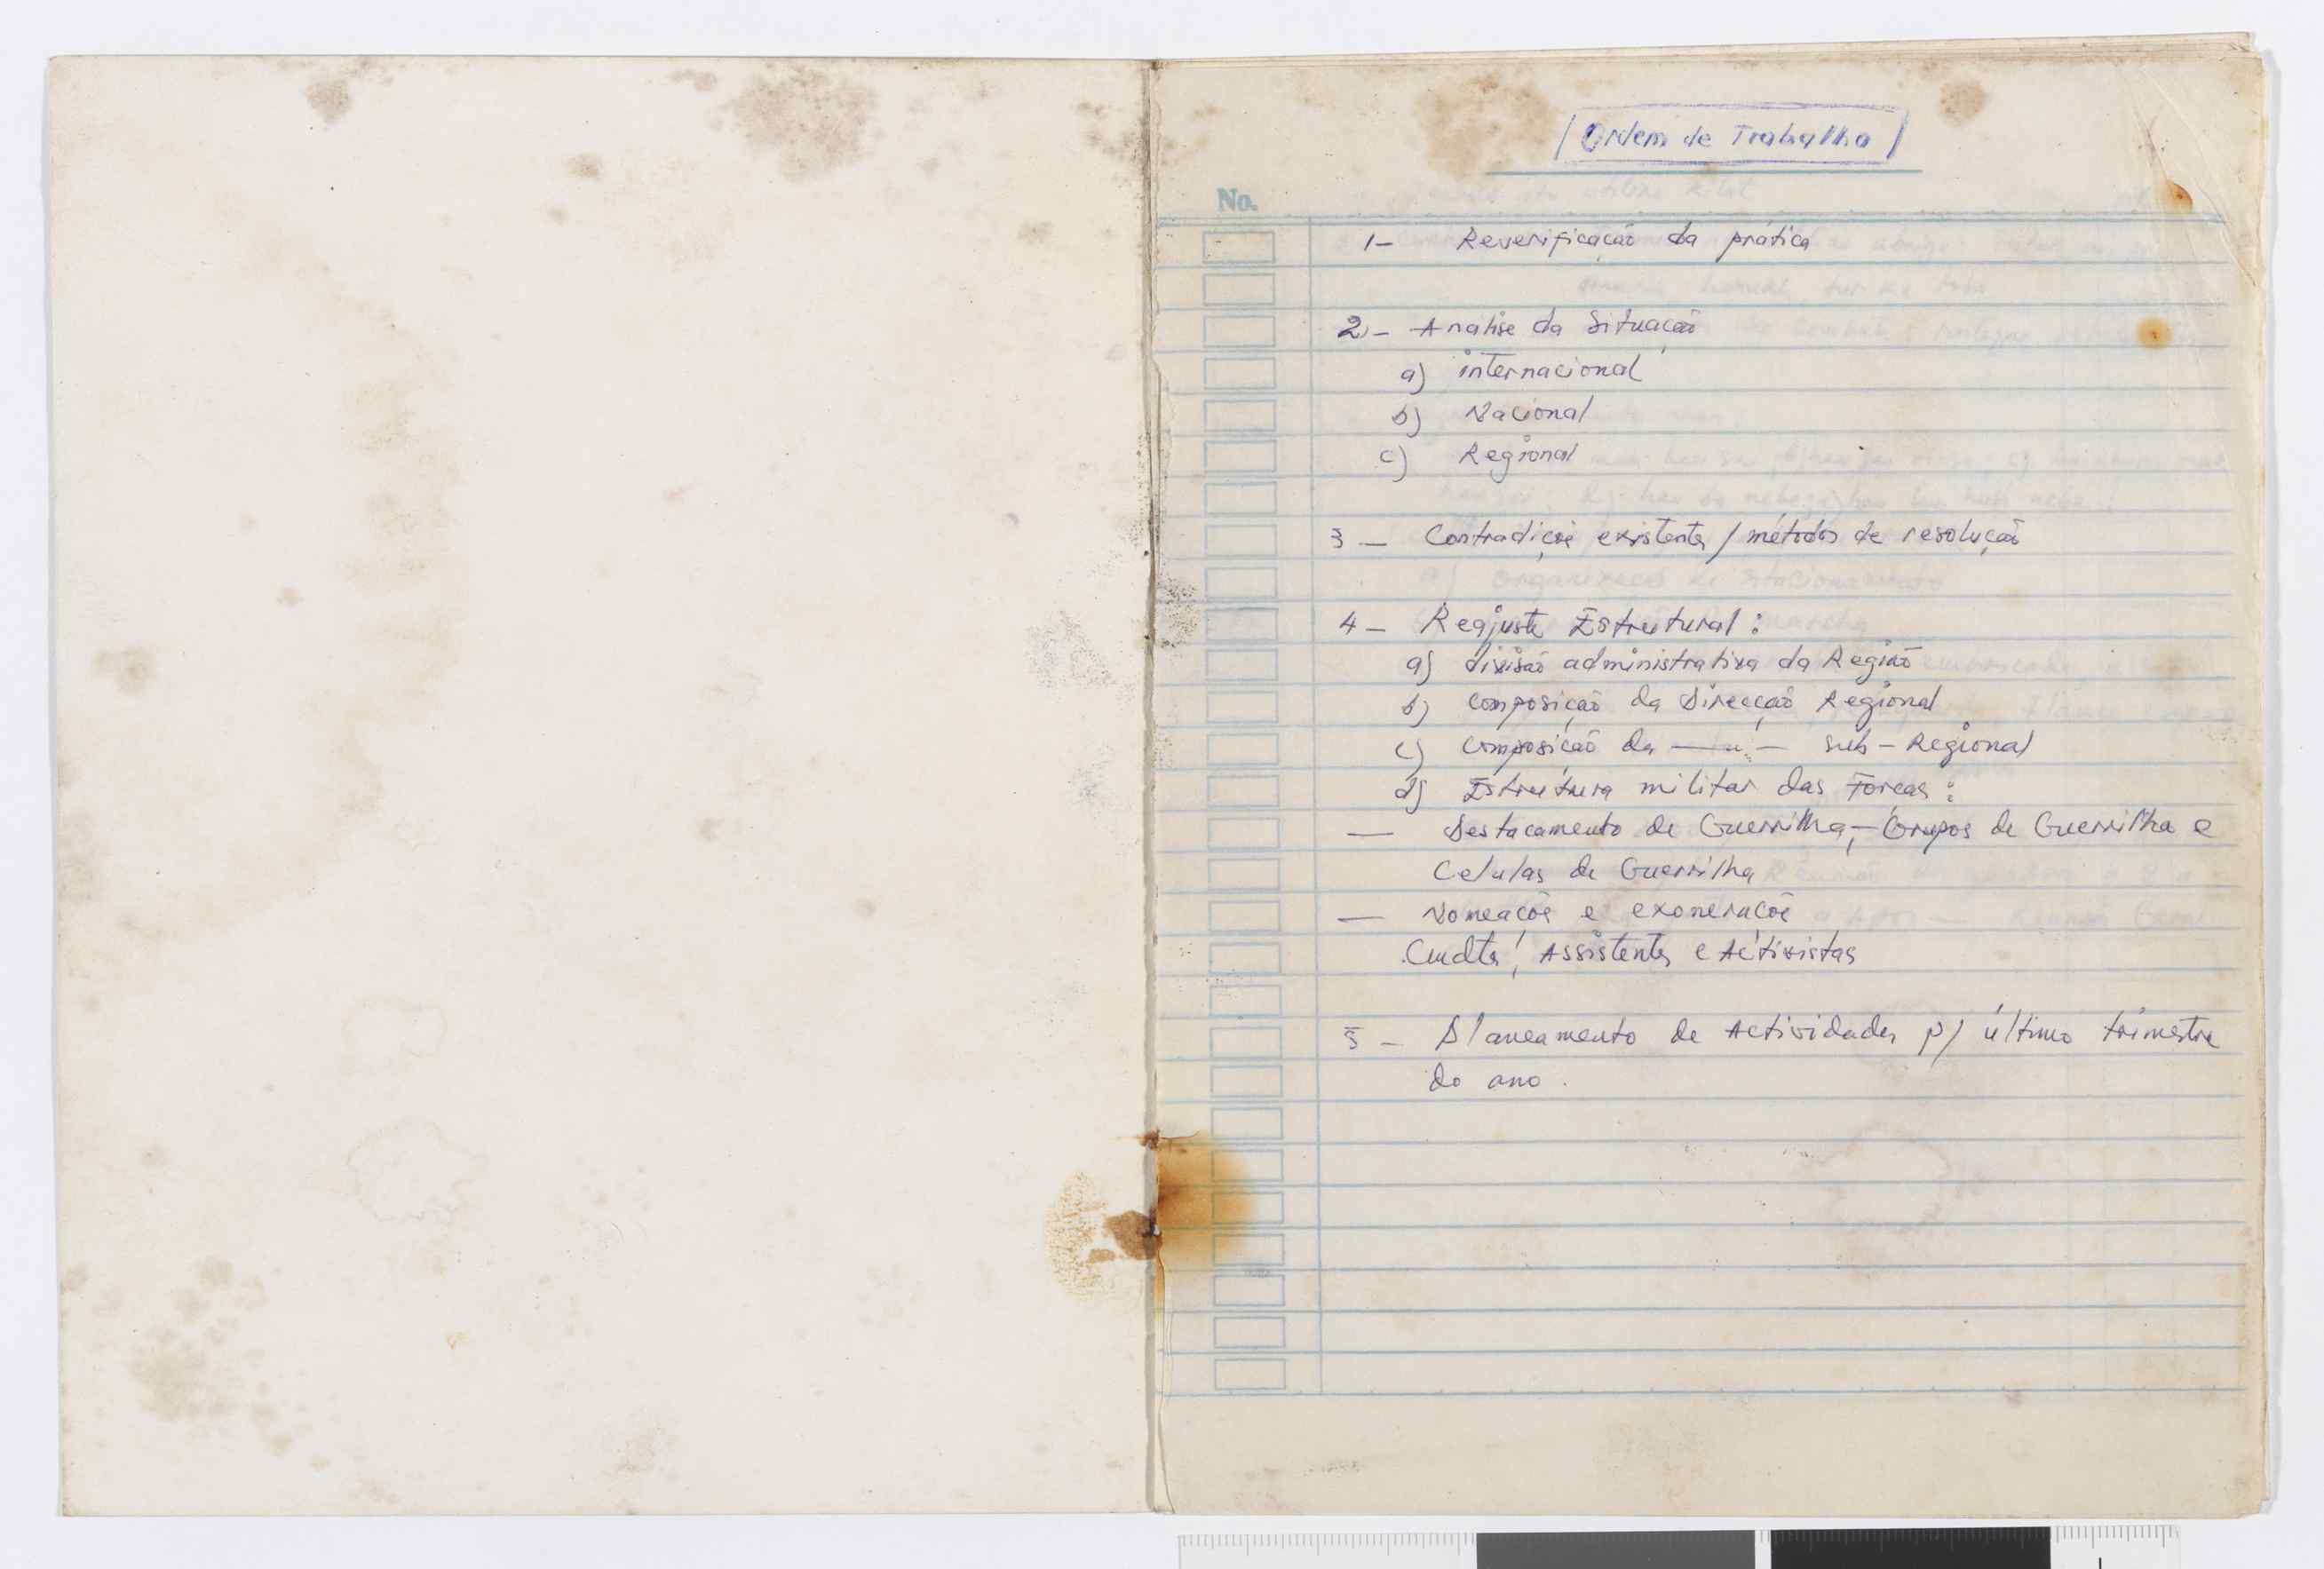 Ordem de Trabalho
No.
1- Reverificação da prática
2- Analise da Situação
a) internacional
b) Nacional
c) Regional
3 - Contradiçõe existentes / métodos de resolução
4 - Reajuste Estrutural :
a) divisão administrativa da Região
b) composição da Direcção Regional
c) composição da —"— sub-Regional
d) Estrutura militar das Forças :
— Destacamento de Guerrilha, - Grupos de Guerrilha e
Celulas de Guerrilha
— Nomeaçõe e exoneraçõe
Cmdtes, Assistentes e Activistas
5 - Planeamento de Actividades p/ último trimestre
do ano.